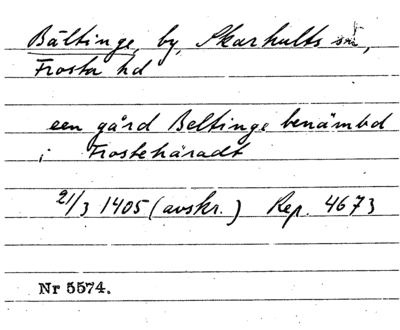 Bältinge, by, Skarhults sn,
Frosta hd
een gård Beltinge benämbd
i Frosteháradt
21/3 1405 (avskr.) Rep. 4673
Nr 5574.